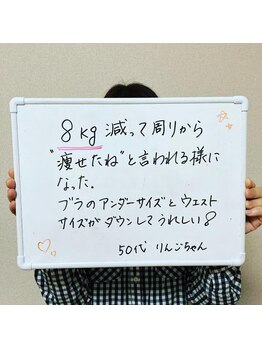 8kg 減って周りから
"痩せたね"と言われる様に
なった.
ブラのアンダーサイズとウエスト
サイズがダウンしてうれしい!
50代 りんごちゃん